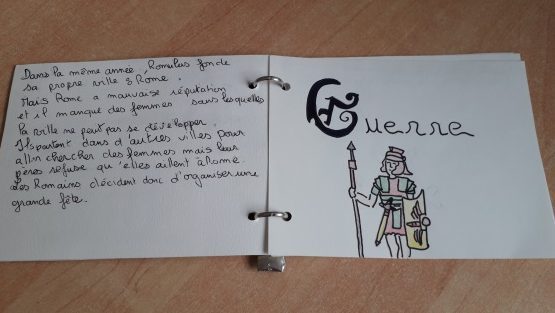 Dans la même année, Romulus fonde
sa propre ville : Rome.
Mais Rome a mauvaise réputation
et il manque des femmes sans lesquelles
la ville ne peut pas se développer.
Ils partent dans d'autres villes pour
aller chercher des femmes mais leur
pères refuse qu'elles aillent à Rome.
Les Romains décident donc d'organiser une
grande fête.
Guerre